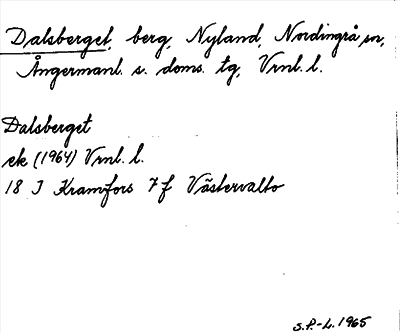 Dalsberget, berg, Nyland, Nordingrå sn,
Ångermanl. s. doms. tg, Vrnl. l.
Dalsberget
ek (1964) Vrnl. l.
18 I Kramfors 7 f Västervalto
S.P.-L. 1965